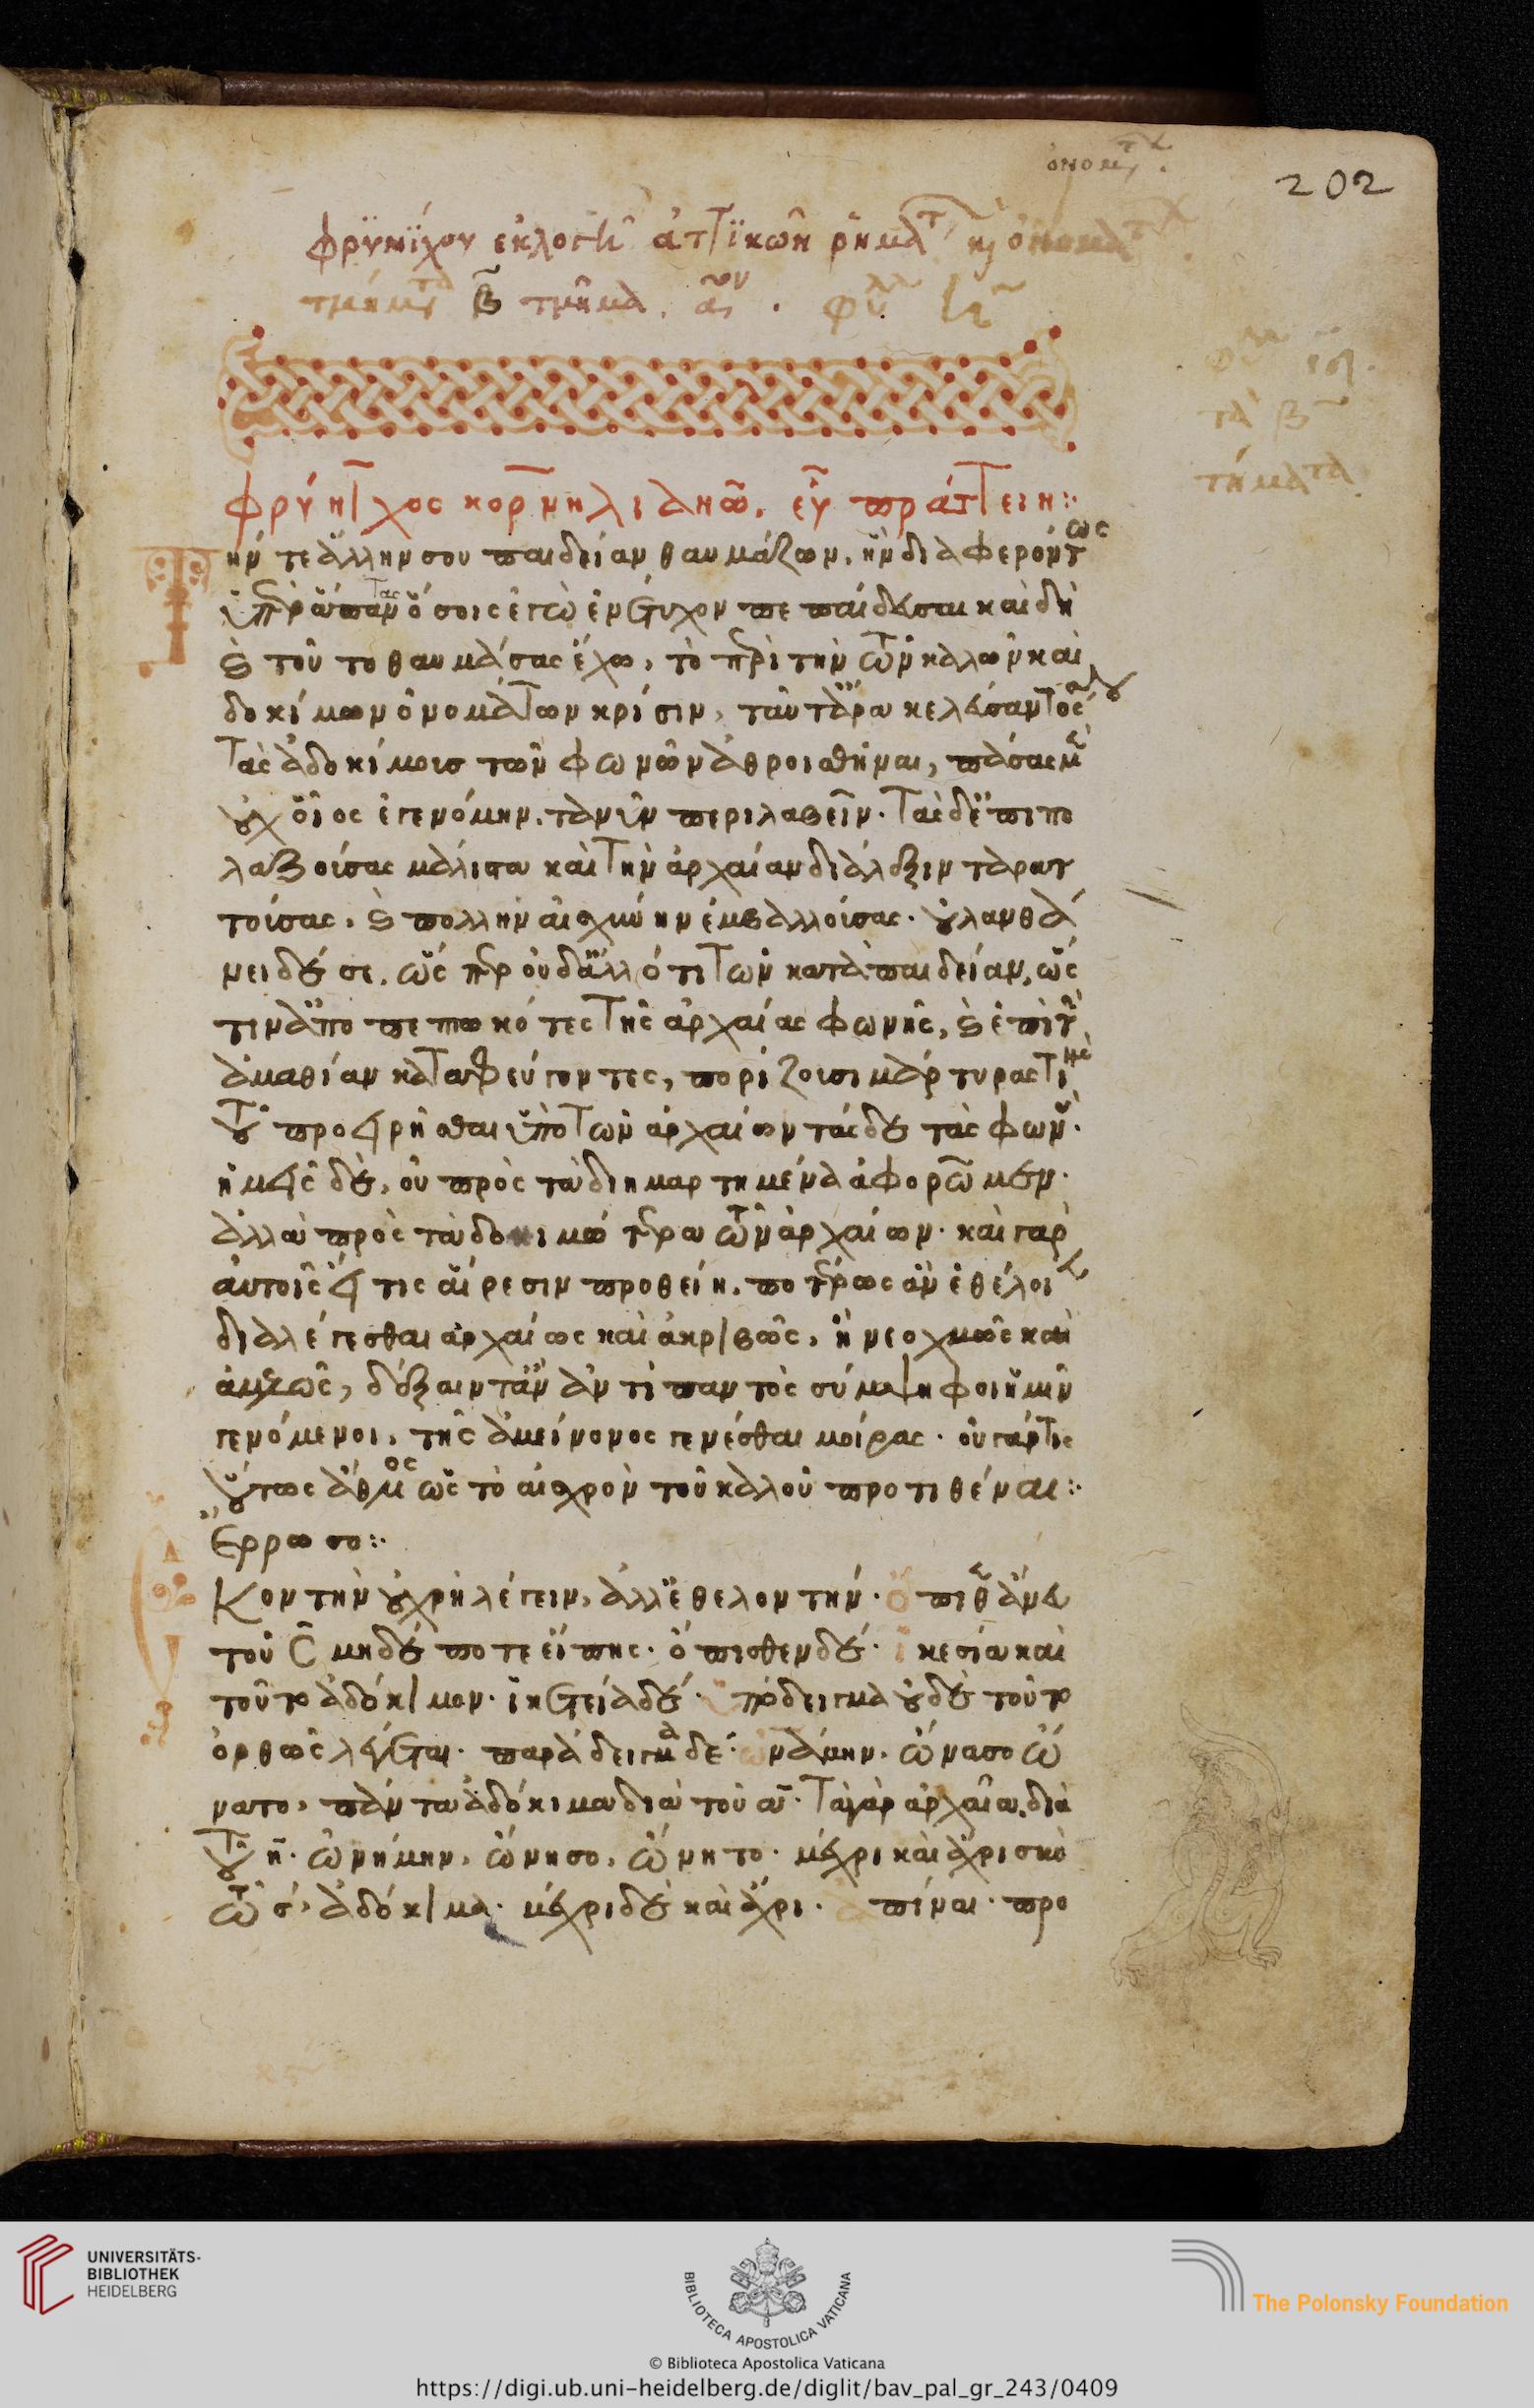 202
φρυνίχου ἐκλογὴ ἀττικῶν ῥημάτ κ ὀνομάτ
τμῆμα
φρύνιχος κορνηλιανῶ. εὖ πράττειν:
τήν τε ἄλλην σου παιδείαν θαυμάζων, ἣν διαφερόντως
ὑπὲρ ἅπαντας ὅσοις ἐγὼ ἐνέτυχον πεπαίδευσαι καὶ δὴ
καὶ τοῦτο θαυμάσας ἔχω, τὸ περὶ τὴν τῶν καλῶν καὶ
δοκίμων ὀνομάτων κρίσιν, ταῦτ' ἄρα κελεύσαντος σου
τὰς ἀδοκίμοις τῶν φωνῶν ἀθροισθῆναι, πάσας μὲν
οὐχ οἷος ἐγενόμην. τανῦν περιλαβεῖν. τὰς δ' ἐπιπο
λαζούσας μάλιστα καὶ τὴν ἀρχαίαν διάλεξιν ταρατ
τούσας. καὶ πολλὴν αἰσχύνην ἐμβαλλούσας. οὐ λανθά
νει δέ σε, ὥσπερ οὐδ' ἄλλό τι τῶν κατὰ παιδείαν, ὥς
τιν ἀποπεπτωκότες τῆς ἀρχαίας φωνῆς, καὶ ἐπὶ τὴν
ἀμαθίαν καταφεύγοντες, πορίζουσι μάρτυρας τινὲς
τοῦ προειρῆσθαι ὑπὸ τῶν ἀρχαίων τάσδε τὰς φων.
ἡμεῖς δὲ, οὐ πρὸς τὰ διημαρτημένα ἀφορῶμεν.
ἀλλὰ πρὸς τὰ δοκιμώτερα τῶν ἀρχαίων. καὶ γὰρ
αὐτοῖς εἴ τις αἵρεσιν προθείη. ποτέρως ἂν ἐθέλοιεν
διαλέγεσθαι ἀρχαίως καὶ ἀκριβῶς, ἢ νεοχμῶς καὶ
ἀμελῶς, δέξαιντ' ἂν ἀντὶ παντὸς σύμψηφοι ἡμῖν
γενόμενοι, τῆς ἀμείνονος γενέσθαι μοίρας. οὐ γάρ τις
οὕτως ἄθλιος ὡς τὸ αἰσχρὸν τοῦ καλοῦ προτιθέναι:
Ἔρρωσο:
Ἑκοντὴν οὐ χρὴ λέγειν, ἀλλ' ἐθελοντήν. ὄπιθεν ἄνευ
τοῦ σ μηδέποτε εἴπης. ὄπισθεν δέ. ἱκεσία καὶ
τοῦτο ἀδόκιμον. ἱκετεία δέ. ὑπόδειγμα οὐδὲ τοῦτο
ὀρθῶς λέγεται. παράδειγμα δέ. ὠνάμην. ὤνασο ὤ
νατο, πάντα ἀδόκιμα διὰ τοῦ α. τὰ γὰρ ἀρχαῖα, διὰ
τοῦ η. ὠνήμην, ὤνησο, ὤνητο. μέχρις καὶ ἄχρις σὺν
τῶ σ, ἀδόκιμα. μέχρι δὲ καὶ ἄχρι. ἀπίναι. προ
UNIVERSITÄTS-
BIBLIOTHEK
HEIDELBERG
BIBLIOTECA APOSTOLICA VATICANA
The Polonsky Foundation
© Biblioteca Apostolica Vaticana
https://digi.ub.uni-heidelberg.de/diglit/bav_pal_gr_243/0409